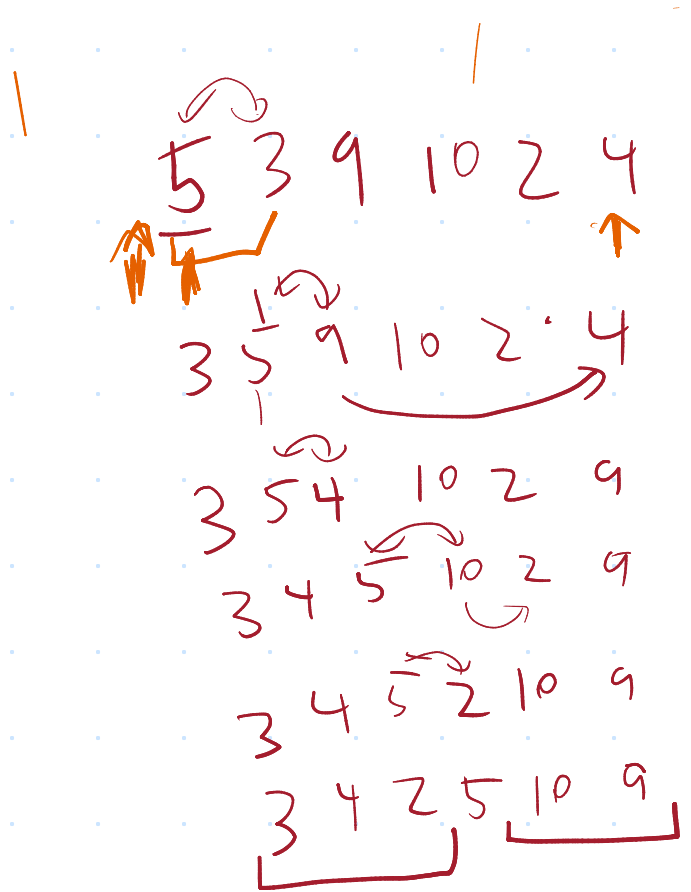 5 3 9 10 2 4
3 5 9 10 2 4
3 5 4 10 2 9
3 4 5 10 2 9
3 4 5 2 10 9
3 4 2 5 10 9